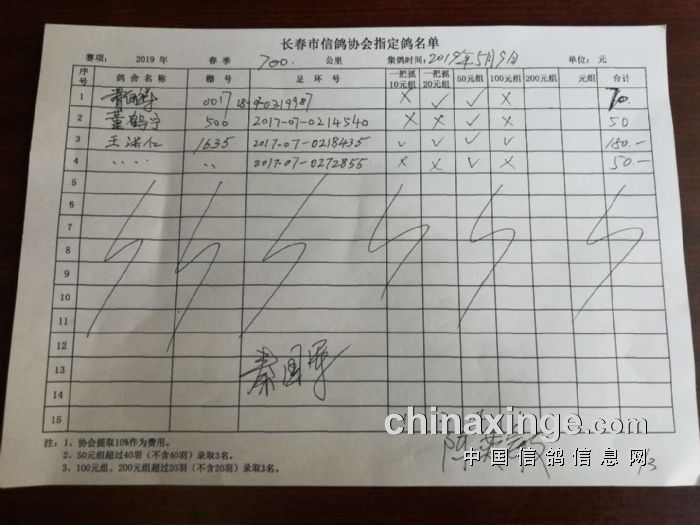 长春市信鸽协会指定鸽名单
赛项: 2019 年 春季 700. 公里 集鸽时间: 2019年5月9日 单位: 元
序号 鸽舍名称 棚号 足环号 一把抓10元组 一把抓20元组 50元组 100元组 200元组 元组 合计
1 0017 18-07-0319987 × ✓ ✓ × 70.
2 董鹤宁 500 2017-07-0214540 × × ✓ × 50
3 王洪仁 1635 2017-07-0218435 ✓ ✓ ✓ ✓ 180.-
4 〃 〃 〃 2017-07-0272855 × × ✓ × 50.-
5
6
7
8
9
10
11
12
13
14
15
秦国军
chinaxinge.com
中国信鸽信息网
注: 1、协会提取10%作为费用。
2、50元组超过40羽(不含40羽)录取3名。
3、100元组、200元组超过20羽(不含20羽)录取3名。
1/3